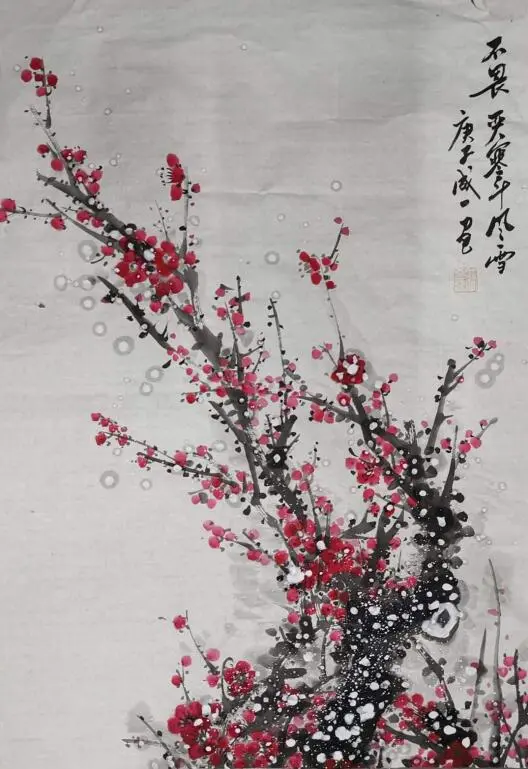 不畏严寒斗风雪
庚子成一画